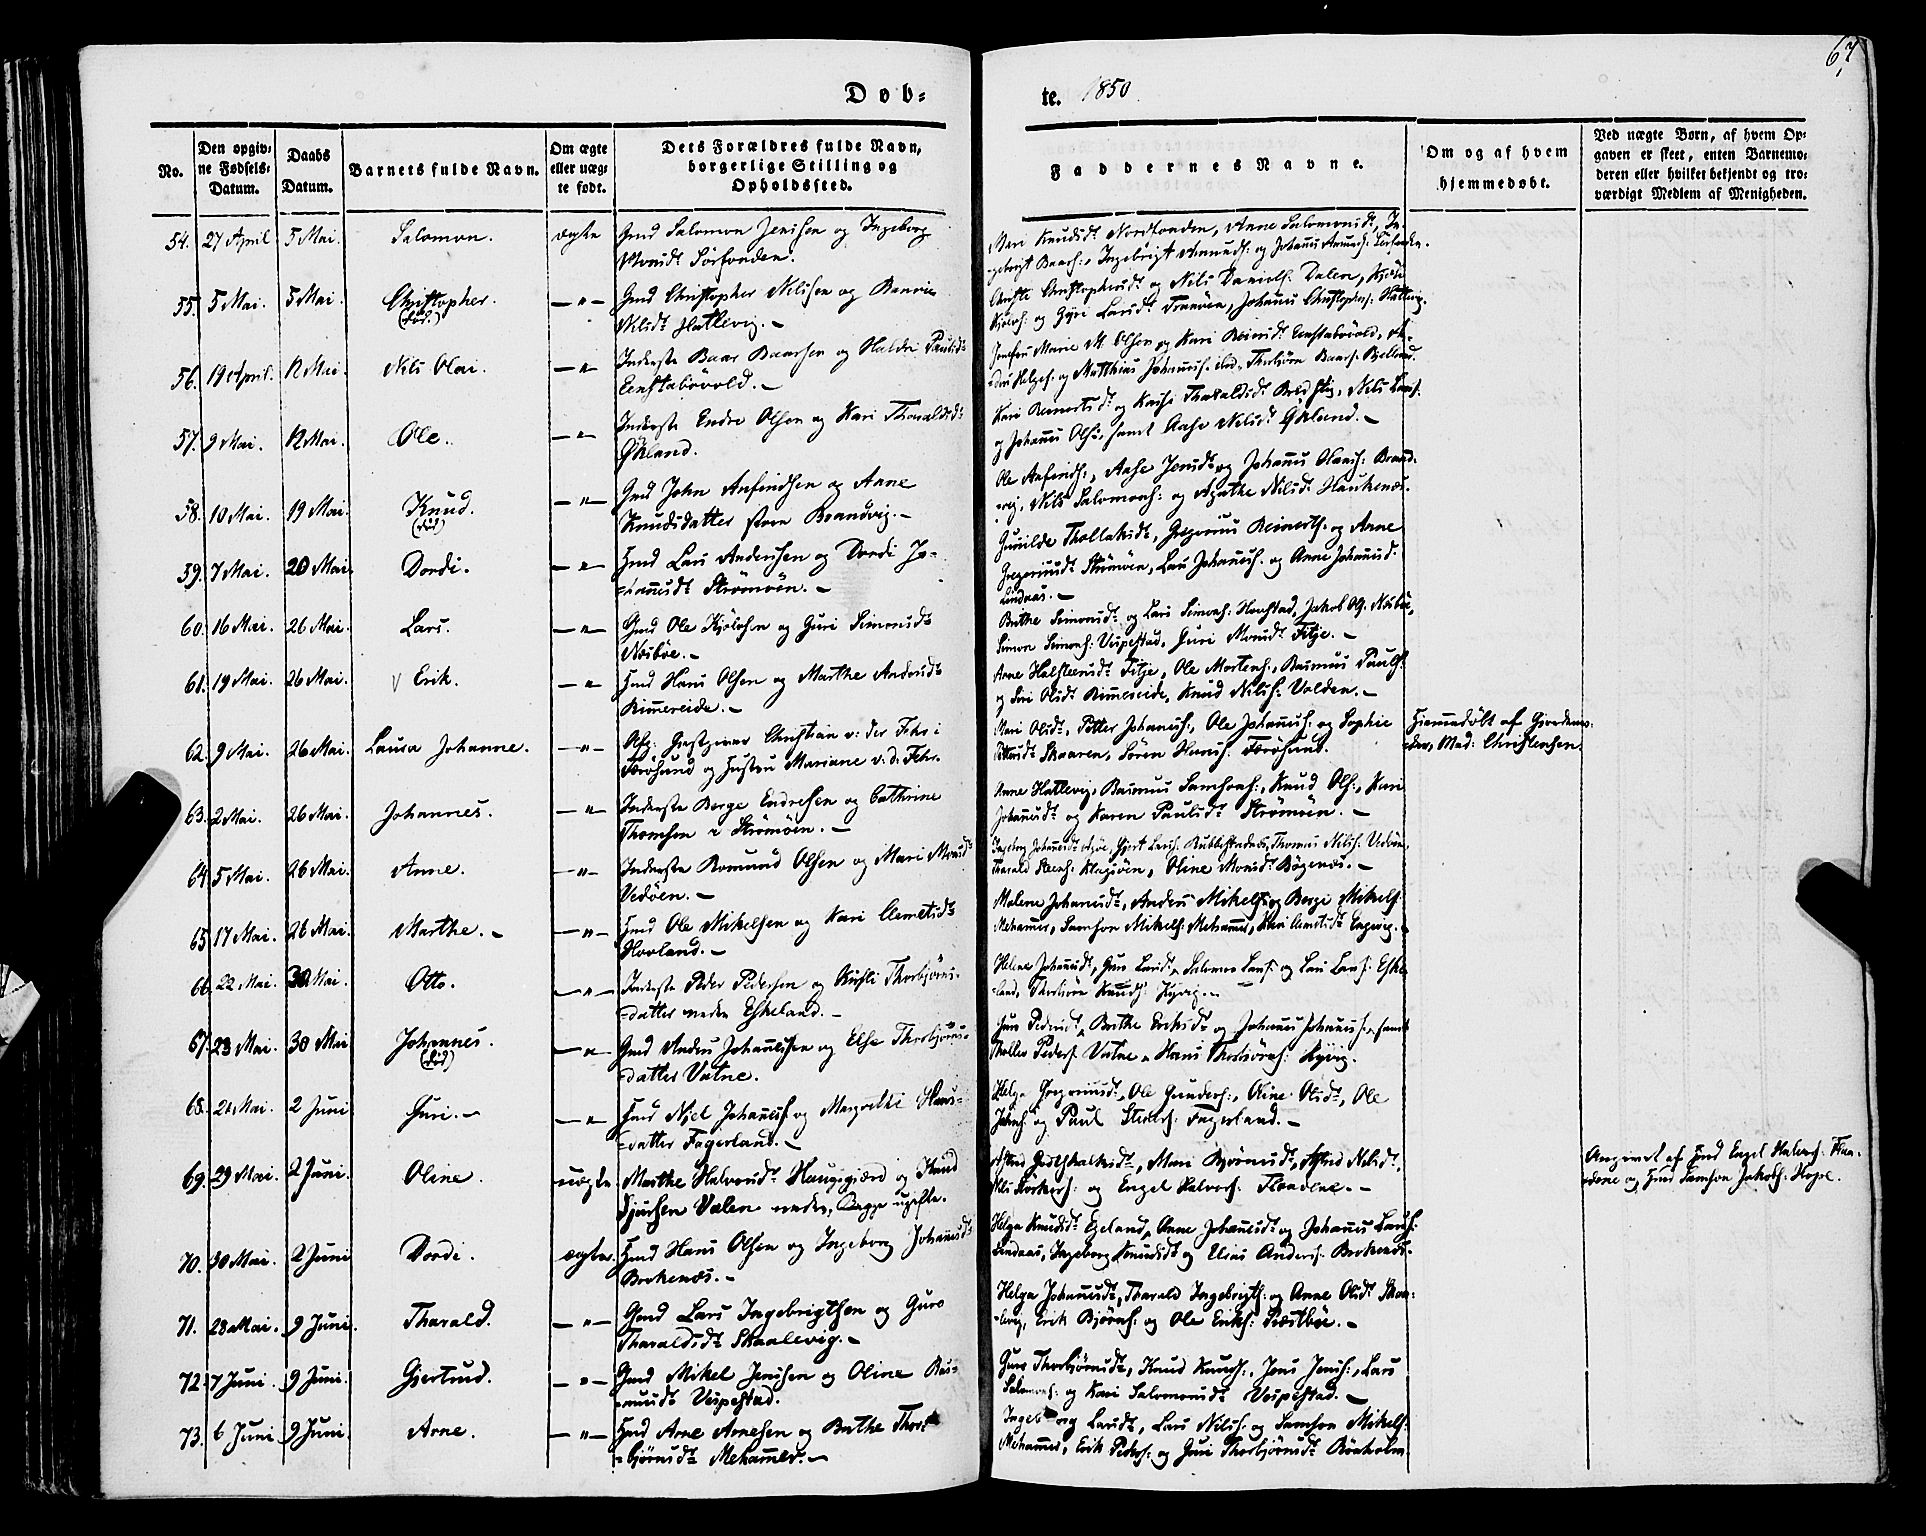 67
Døb-
te. 1850
No.
Den opgiv-
ne Fødsels-
Datum.
Daabs
Datum.
Barnets fulde Navn.
Om ægte
eller uæg-
te født.
Dets Forældres fulde Navn,
borgerlige Stilling og
Opholdssted.
Faddernes Navne.
Om og af hvem
hjemmedøbt.
Ved uægte Børn, af hvem Op-
gaven er skeet, enten Barnemo-
deren eller hvilket bekjendt og tro-
værdigt Medlem af Menigheden.
54. 27 April 5 Mai. Salomon. ægte Gmd Salomon Jensen og Ingeborg
Sørfonden.
Mari Knudsdt Nordfonden, Anne Salomonsdt, In-
gebrigt Baars:, Ingebrigt Amunds: og Johannes Amunds: Sørfonden.
55. 5 Mai. 5 Mai. Christopher. —"— Gmd Christopher Nilsen og
(død.) Nilsdt Hatlevig.—
Christophersdt og Nils Daniels: Dalen,
og Gyri Larsdt Johannes Christophers: Hatlevig.
56. 19 April. 12 Mai. Nils Olai. —"— Inderste Baar Baarsen og Haldri Paulsdt
Eenstabøvold.—
Jomfru Marie M. Olsen og Kari Eenstabøvold,
Helges: og Matthias Johanness: ibid, Thorbjørn Baars:
57. 9 Mai. 12 Mai. Ole. —"— Inderste Endre Olsen og Kari Tharaldsdt
Økland.
Kari Reinertsdt og Tharaldsdt Nils Lars:
og Johannes Ols:, samt Aase Nilsdt Økland.—
58. 10 Mai. 19 Mai. Knud. —"— Gmd John Anfindsen og Anne
(død) Knudsdatter store Brandvig.—
Ole Anfinds:, Aase Jensdt og Johannes Olais: Brand-
vig, Nils Salomons: og Agathe Nilsdt Haukenæs.
59. 7 Mai. 20 Mai. Dordi. —"— Hmd Lars Andersen og Dordi Jo-
hannesdt Strømøen.—
Gunilde Thollaksdt, Gregorius Reinerts: og Anne
Gregoriusdt Strømøen, Lars Johanness: og Anne Johannesdt
Lindaas.—
60. 16 Mai. 26 Mai. Lars. —"— Gmd Ole Kjølsen og Guri Simonsdt
Næsbøe.—
Brithe Simonsdt og Lars Simons: Jakob Ols: Næsbøe,
Simon Simons: Vespestad, Guri Monsdt Fitje.—
61. 19 Mai. 26 Mai. Erik. —"— Hmd Hans Olsen og Marthe Andersdt
Rimereide.—
Anne Halsteensdt Fitje, Ole Mortens:, Rasmus Pauls:
og Siri Olsdt Rimereide, Knud Nils: Volden.—
62. 9 Mai. 26 Mai. Laura Johanne. —"— Gjestgiver Christian v: der Fehr i
Førøsund og Hustru Mariane v. d. Fehr.
Mari Olsdt, Petter Johaness:, Ole Johanness: og Sophie
Skaaren, Søren Hans: Førøsund.
Hjemmedøbt af Gjordemo-
der, Mad: Christensen.
63. 2 Mai. 26 Mai. Johannes. —"— Inderste Børge Endresen og Cathrine
Thomsen i Strømøen.—
Anne Hatlevig, Rasmus Samsons:, Knud Ols:, Kari
Johannesdt og Karen Paulsdt Strømøen.—
64. 5 Mai. 26 Mai. Anne. —"— Inderste Romund Olsen og Mari Monsdt
Vedøen.—
Ingeborg Johannesdt Gjert Lars: Thomas Nils: Vedøen,
Tharald Oline Monsdt Bøgenæs.—
65. 17 Mai. 26 Mai. Marthe.— —"— Hmd Ole Mikelsen og Kari Clemetsdt
Hovland.—
Malene Johannesdt, Anders Mikels: og Børge Mikels:
Mehammer, Samson Mikels: Mehammer, Kari Clemetsdt Engevig.
66. 22 Mai. 30 Mai. Otto. —"— Inderste Peder Pedersen og Thorbjørns-
datter nedre Eskeland.—
Helene Johannesdt, Guro Larsdt, Salomon Lars: og Lars Lars: Eske-
land, Knuds:
67. 23 Mai. 30 Mai Johannes. —"— Gmd Anders Johannessen og Else Thorbjørns-
(død) datter Vatne.
Guro Pedersdt, Brithe Eriksdt og Johannes Johanness:, samt
Peders: Vatne, Hans Thorbjørns:
68. 21 Mai. 2 Juni Guri.— —"— Hmd Niel Johaness: og Margrethe Hans-
datter Fagerland.—
Helga Gregoriusdt, Ole Gunders:, Oline Olsdt, Ole
og Paul Fagerland.—
69. 29 Mai. 2 Juni. Oline. uægte. Marthe Halvorsdt Haugsgjærd og Knud
Sjursen Valen nedre, Begge ugifte.
Gudskalksdt, Mari Bjørnsdt, Nilsdt,
og Engel Halvors: Flaadene.—
Angivet af Hmd Engel Halvors: Flaa-
dene og Hmd Samson Jakobs: Hope.
70. 30 Mai. 2 Juni Dordi. ægte. Hmd Hans Olsen og Ingeborg Johannesdt
Brekenæs.—
Helga Knudsdt Anne Johannesdt og Johannes Lars:
Lindaas, Ingeborg Knudsdt og Elias Anders: Brekenæs.
71. 28 Mai. 9 Juni. Tharald. —"— Gmd Lars Ingebrigtsen og Guro
Tharaldsdt Skaalevig.—
Helga Johannesdt, Tharald Ingebrigts: og Anne Olsdt Skaa-
levig, Erik Bjørns: og Ole Eriks: Præstbøe.—
72. 7 Juni. 9 Juni. Gjertrud. —"— Gmd Mikel Jensen og Oline Ras-
musdt Vespestad.
Guro Thorbjørnsdt, Knud Knuds:, Jens Jens:, Lars
Salomons: og Kari Salomonsdt Vespestad.—
73. 6 Juni 9 Juni. Arne. —"— Hmd Arne Arnesen og Brithe Thor-
bjørnsdt Mehammer.—
Ingeborg Larsdt, Lars Nils: og Samson Mikels:
Mehammer, Erik Peders: og Guri Thorbjørnsdt